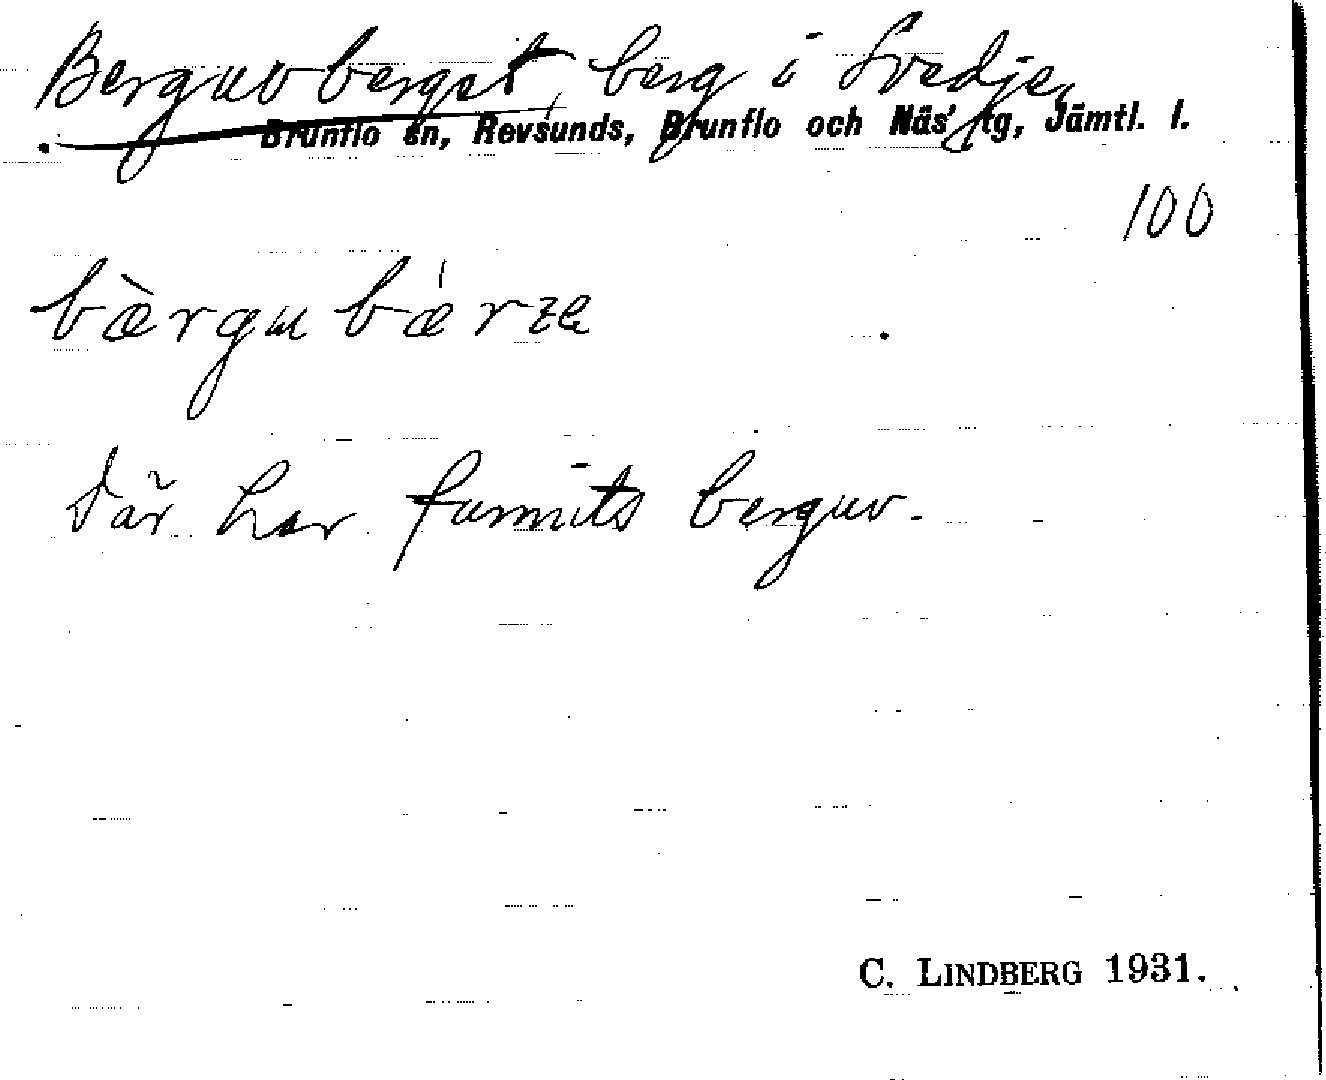 Berguvberget, berg i Svedje,
Brunflo sn, Revsunds, Brunflo och Näs' tg, Jämtl. l.
100
bæ̀rgu bǽrze
Där har funnits berguv.
C. LINDBERG 1931.